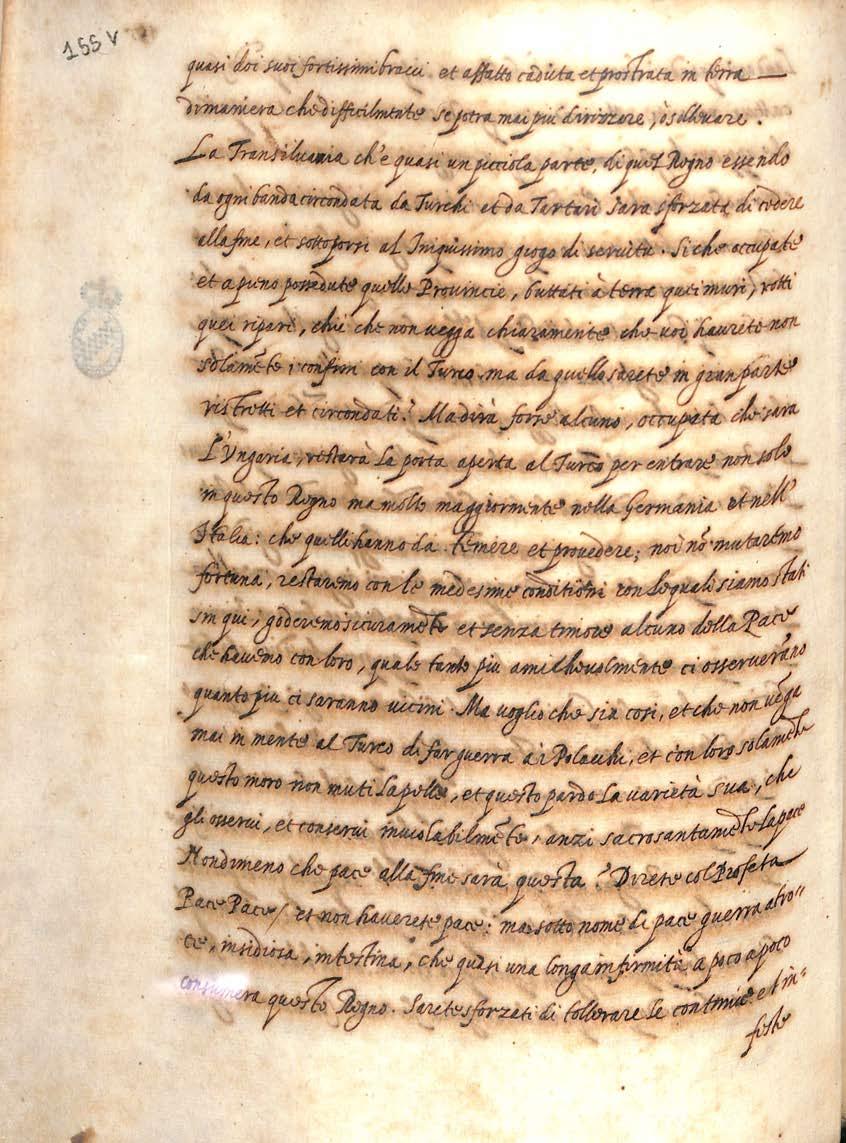 155 v
quasi doi suoi fortissimi bracci et affatto caduta et prostrata in terra
di maniera che difficilmẽte se potra mai più dirizzare, ò sullevare.
La Transilvania ch'e quasi un picciola parte, di quel Regno essendo
da ogni banda circondata da Turchi et da Tartari sara sforzata di cedere
alla fine, et sottoporsi al Iniquissimo giogo di servitu. Si che occupate
et a pieno possedute quelle Provincie, buttati à terra quei muri, rotti
quei ripari, chi è che non vegga chiaramente che voi haverete non
solamẽte i confini con il Turco ma da quello sarete in gran parte
ristretti et circondati? Ma dirà forse alcuno, occupata che sara
L'Ungaria, restarà la porta aperta al Turco per entrare non solo
in questo Regno ma molto maggiormente nella Germania et nell'
Italia: che quelli hanno da temere et provedere; noi nõ mutaremo
fortuna, restaremo con le medesime conditioni con le quali siamo stati
sin qui, goderemo sicuramẽte et senza timore alcuno della Pace
che havemo con loro, quale tanto piu amichevolmente ci osserverãno
quanto piu ci saranno vicini. Ma voglio che sia cosi, et che non vẽga
mai in mente al Turco di far guerra a i Polacchi, et con loro solamẽte
questo moro non muti la pelle, et questo pardo la varietà sua, che
gli osservi, et conservi inviolabilmẽte, anzi sacrosantamẽte la pace
Nondimeno che pace alla fine sarà questa? Direte col Profeta
Pace Pace/ et non haverete pace: ma sotto nome di pace guerra atro-
ce, insidiosa, intestina, che quasi una longa infirmità a poco a poco
consumera questo Regno. Sarete sforzati di tollerare le continue et in-
feste